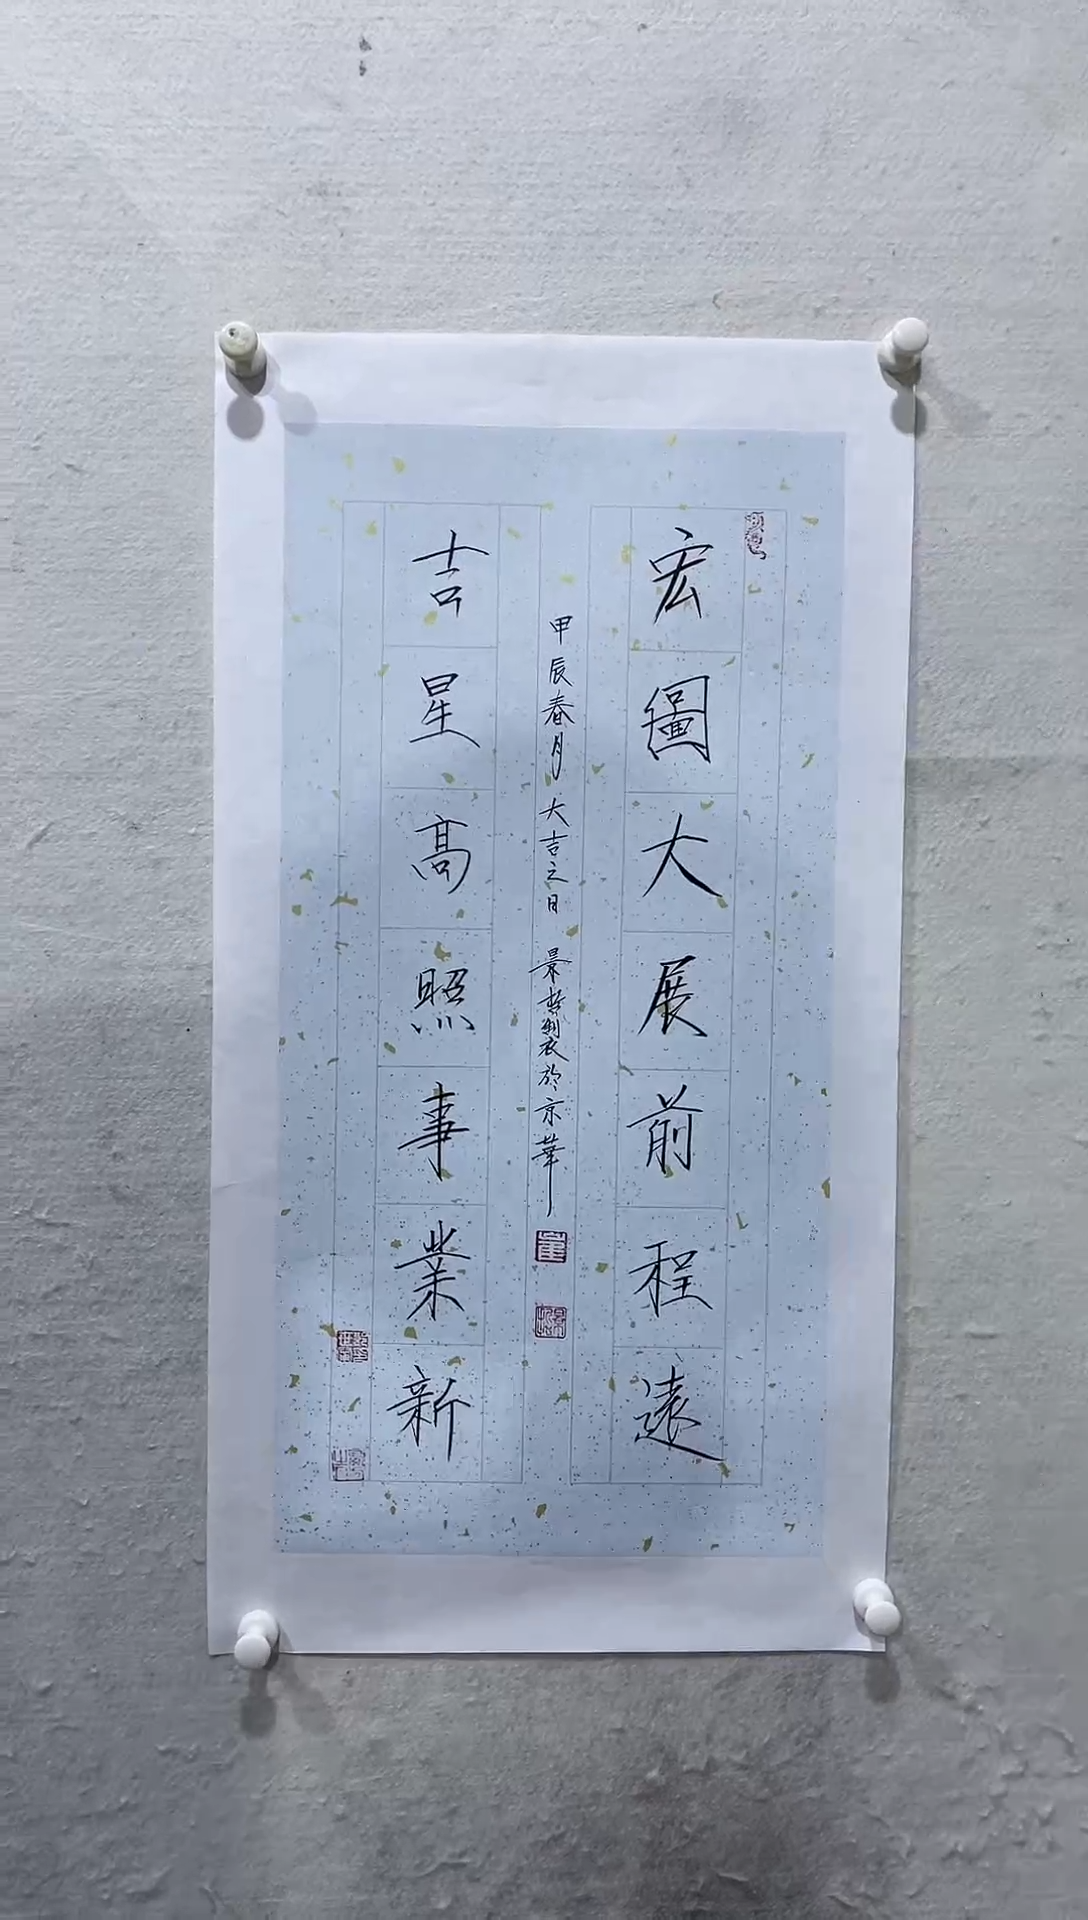 宏圖大展前程遠
甲辰春月 大吉之日 景哲製於京華
吉星高照事業新